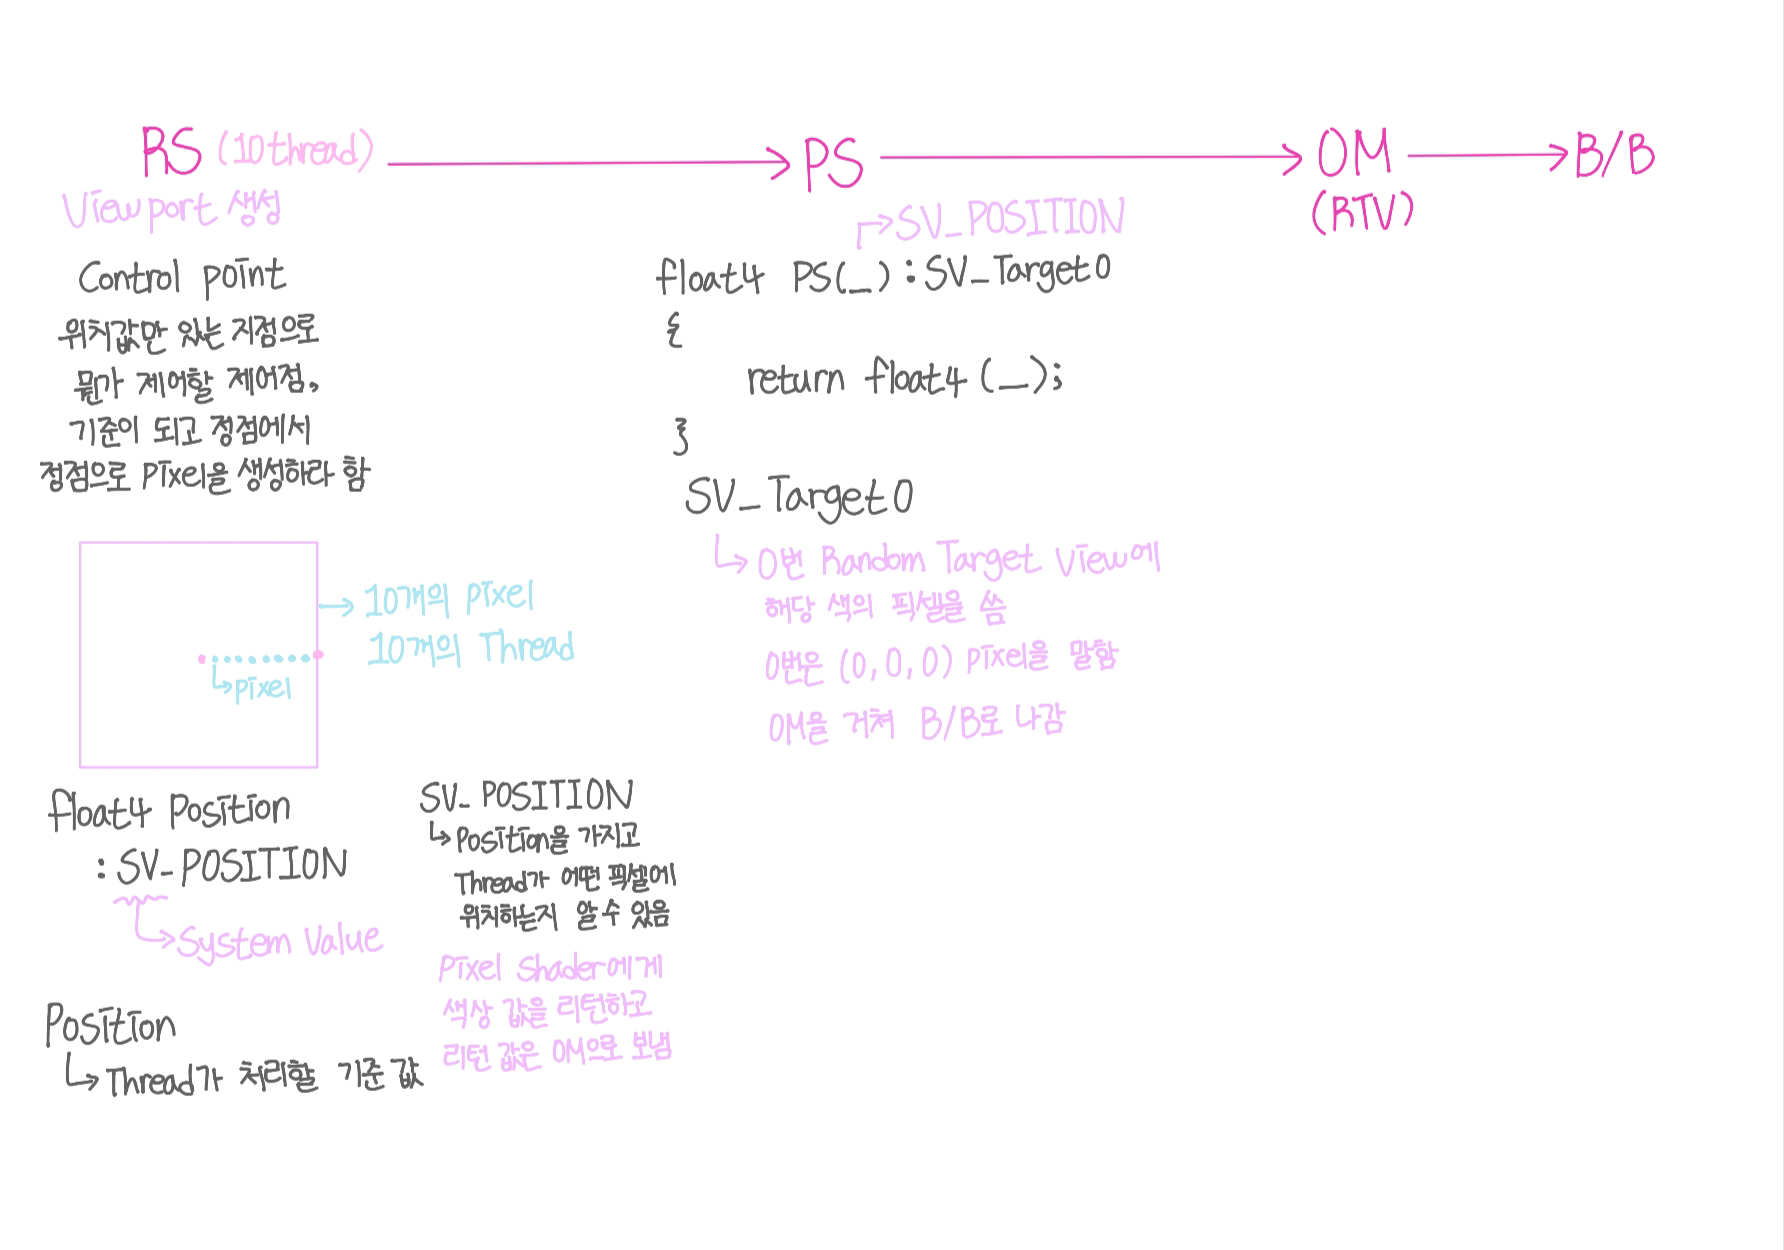 RS (10thread)
PS
OM
B/B
(RTV)
Viewport 생성
Control point
위치값만 있는 지점으로
뭔가 제어할 제어점,
기준이 되고 정점에서
정점으로 Pixel을 생성하라 함
10개의 Pixel
10개의 Thread
Pixel
float4 Position
: SV_POSITION
System Value
Position
Thread가 처리할 기준 값
SV_POSITION
Position을 가지고
Thread가 어떤 픽셀에
위치하는지 알 수 있음
Pixel Shader에게
색상 값을 리턴하고
리턴 값은 OM으로 보냄
SV_POSITION
float4 PS(_) : SV_Target0
{
return float4 (_);
}
SV_Target0
0번 Random Target View에
해당 색의 픽셀을 씀
0번은 (0,0,0) Pixel을 말함
OM을 거쳐 B/B로 나감